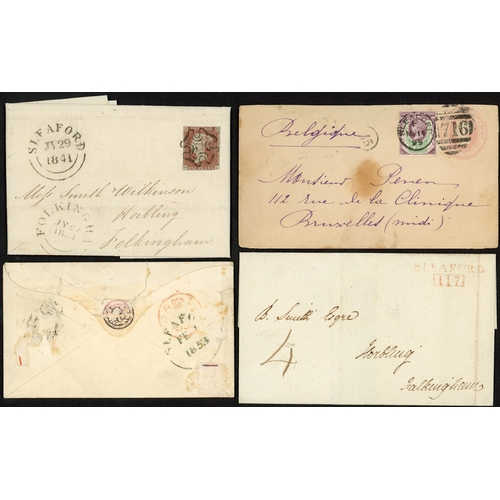 SLEAFORD
JY 29
1841
Mess Smith Wilkinson
Horbling
Folkingham
FOLKINGHA
JY
Belgique
SLEAFORD
716
Monsieur Penen
112 rue de la Clinique
Bruxelles (midi)
SLEAFO
FE
1853
SLEAFORD
117
B. Smith Esqre
4
Horbling
Falkingham